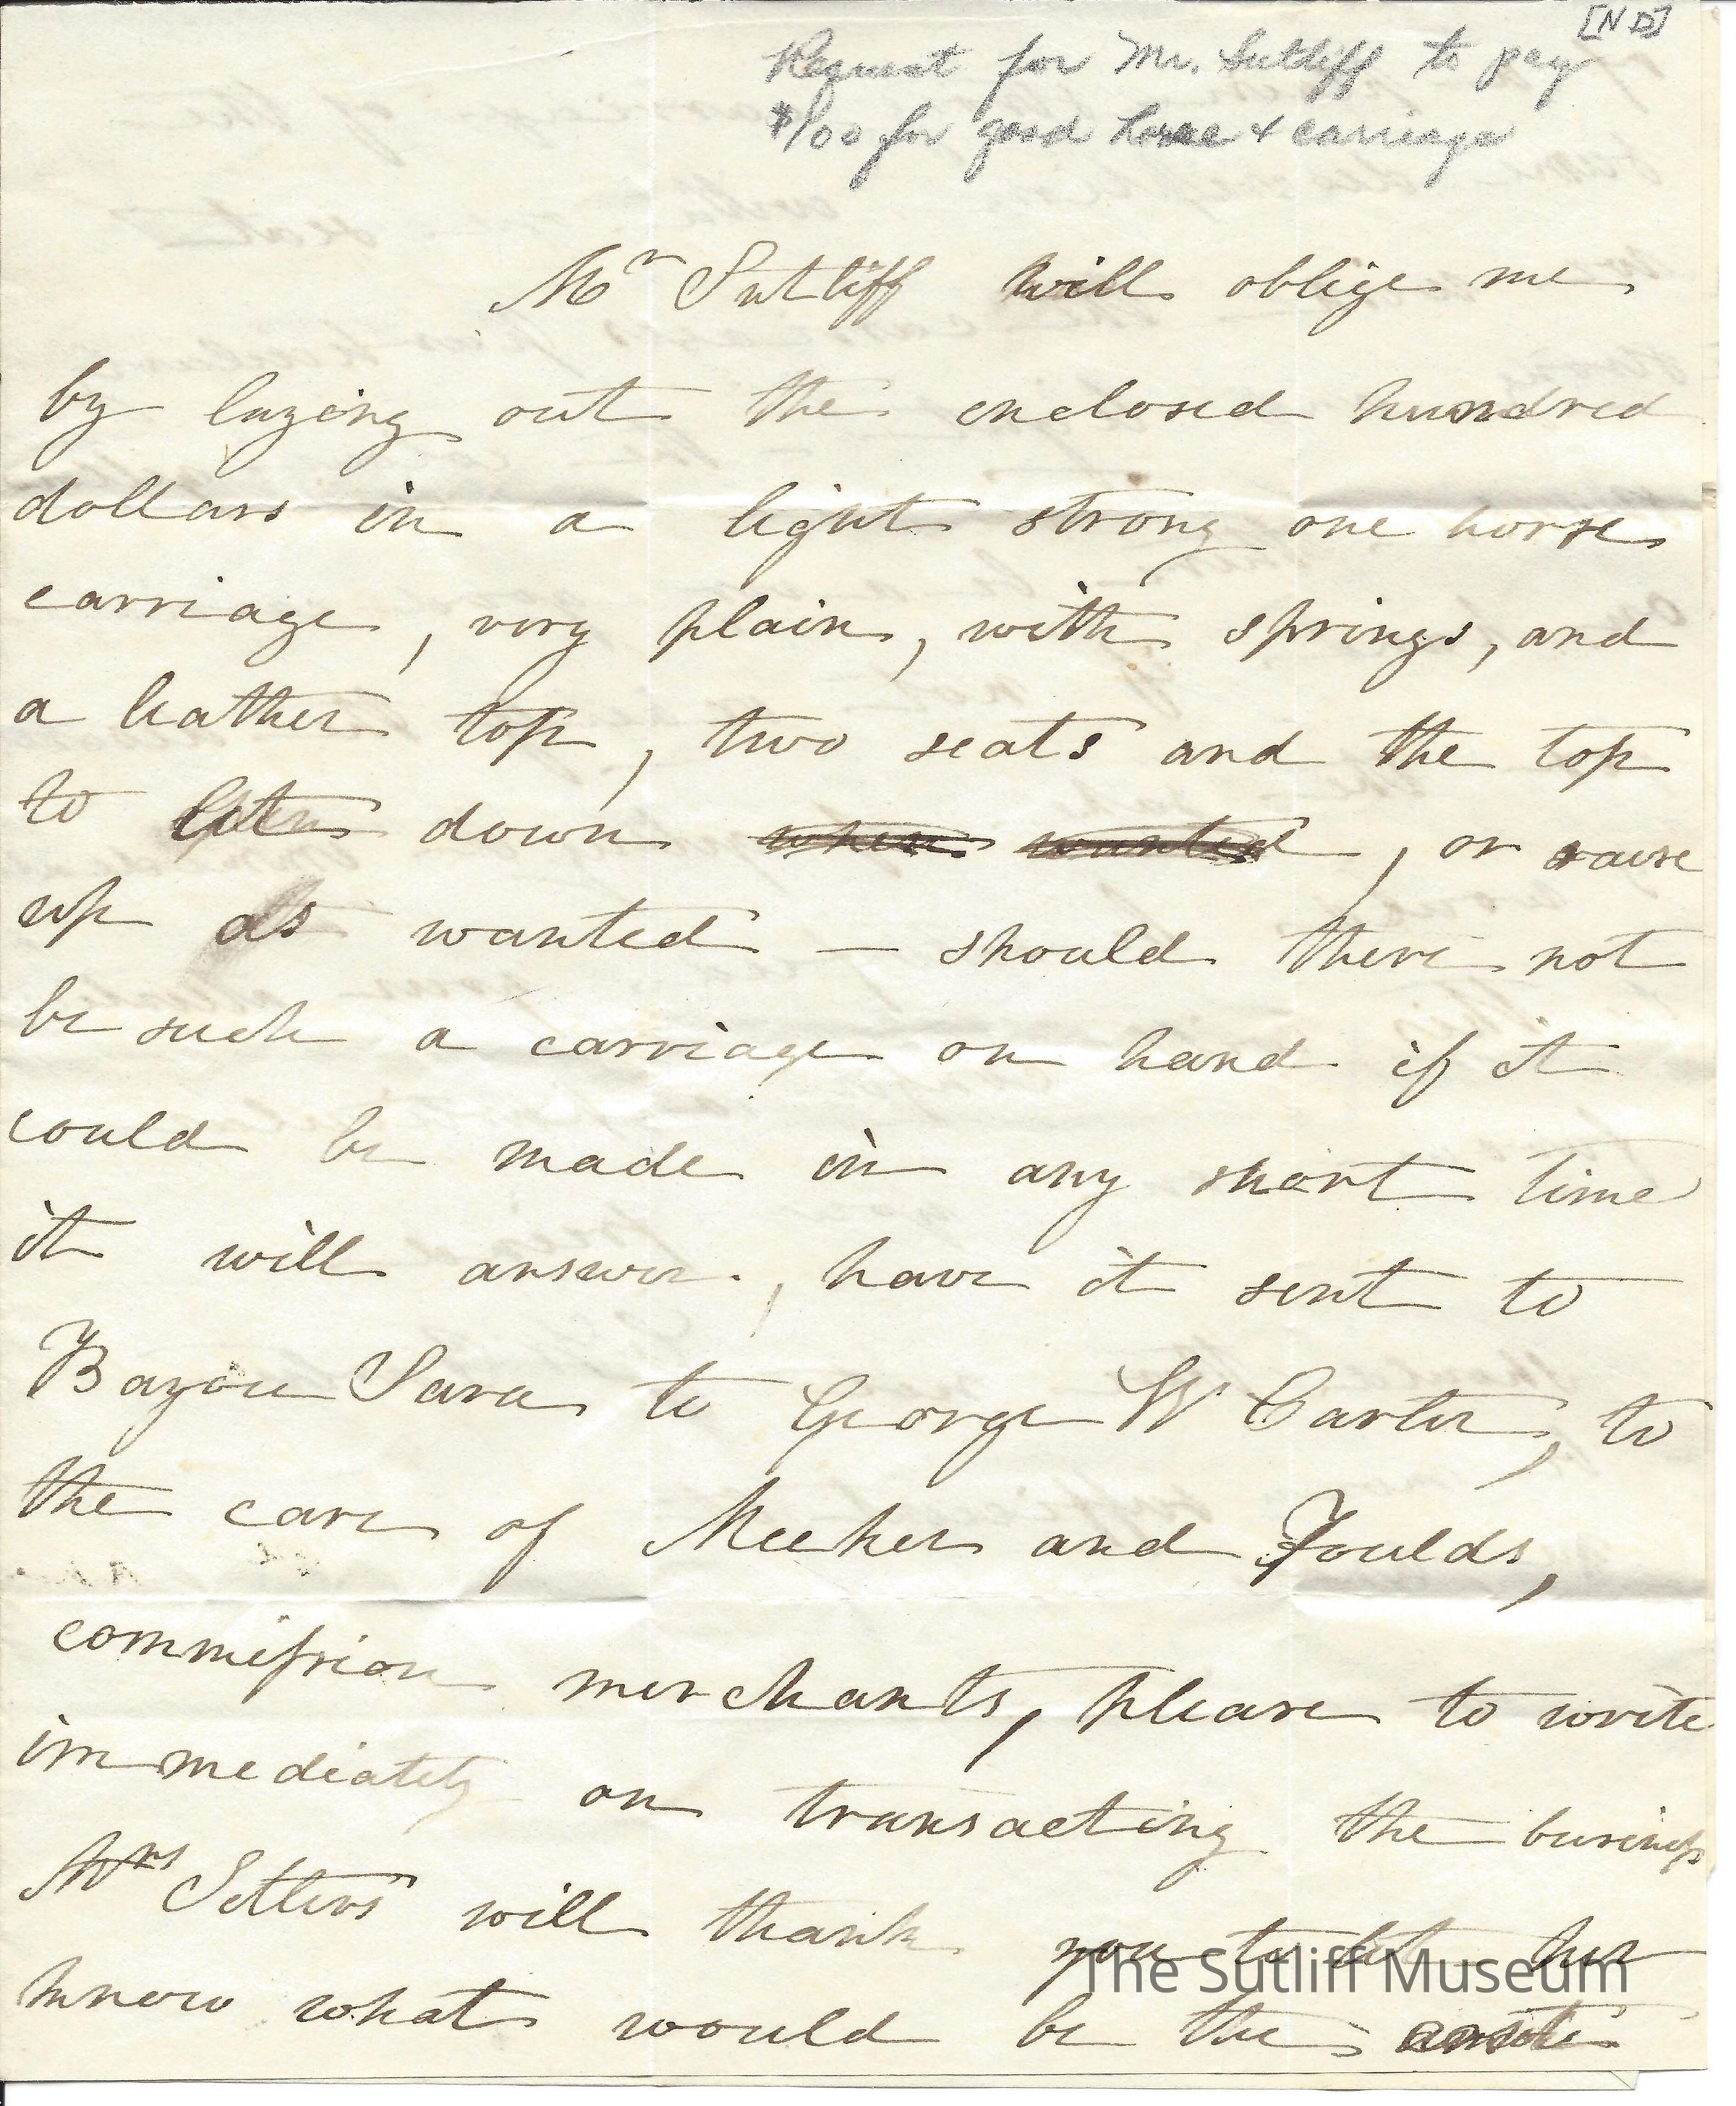 [ND]
Request for Mr. Sutliff to pay
$100 for good horse & carriage
Mr Sutliff will oblige me
by laying out the enclosed hundred
dollars in a light strong one horse
carriage, very plain, with springs, and
a leather top, two seats and the top
to let down when wanted, or raise
up as wanted — should there not
be such a carriage on hand if it
could be made in any short time
it will answer, have it sent to
Bayou Sara to George W Carter, to
the care of Meeker and Foulds,
commission merchants, please to write
immediately on transacting the business
Mrs Setters will thank you to let her
know what would be the
The Sutliff Museum